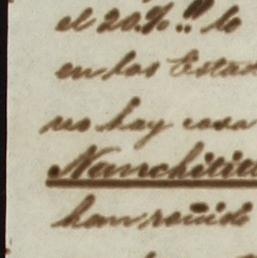 el 20.%.!! lo
en los Estad
no hay cosa
Nanchititl
han venido